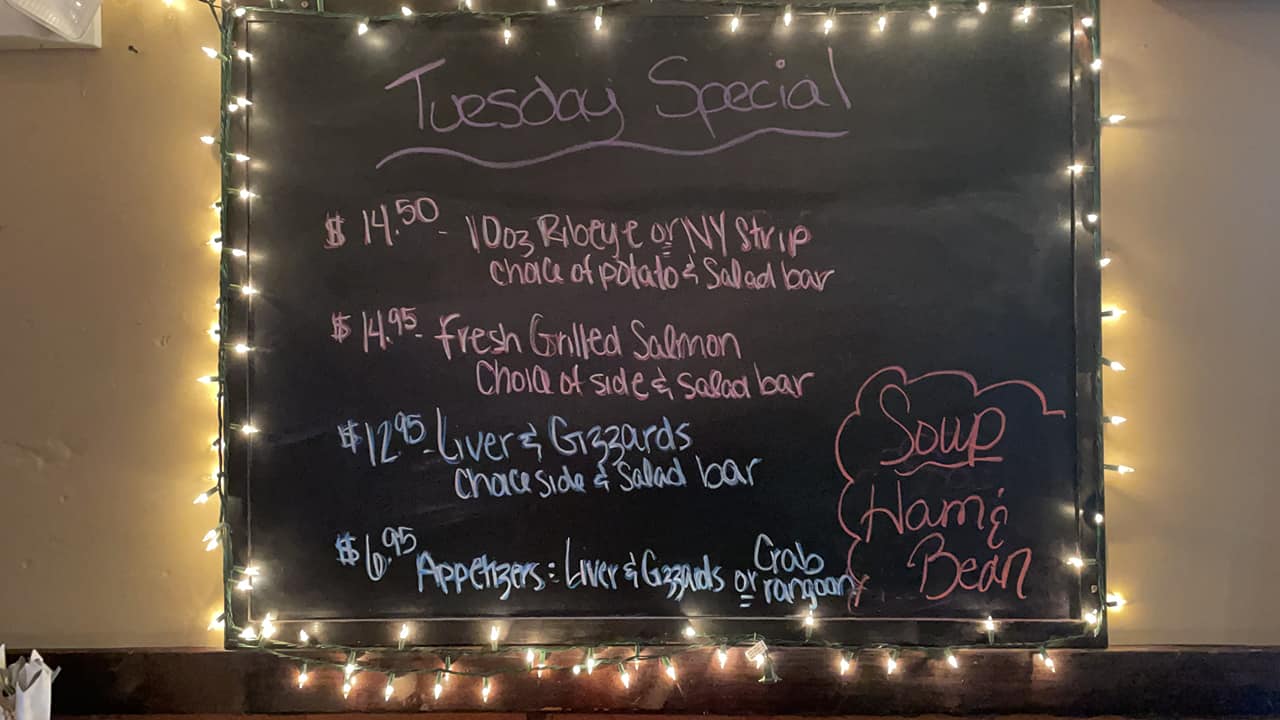 Tuesday Special
$14.50 - 10oz Ribeye or NY Strip
choice of potato & Salad bar
$14.95 - Fresh Grilled Salmon
Choice of side & salad bar
$12.95 - Liver & Gizzards
Choice side & Salad bar
$6.95 Appetizers: Liver & Gizzards or Crab rangoon
Soup
Ham &
Bean